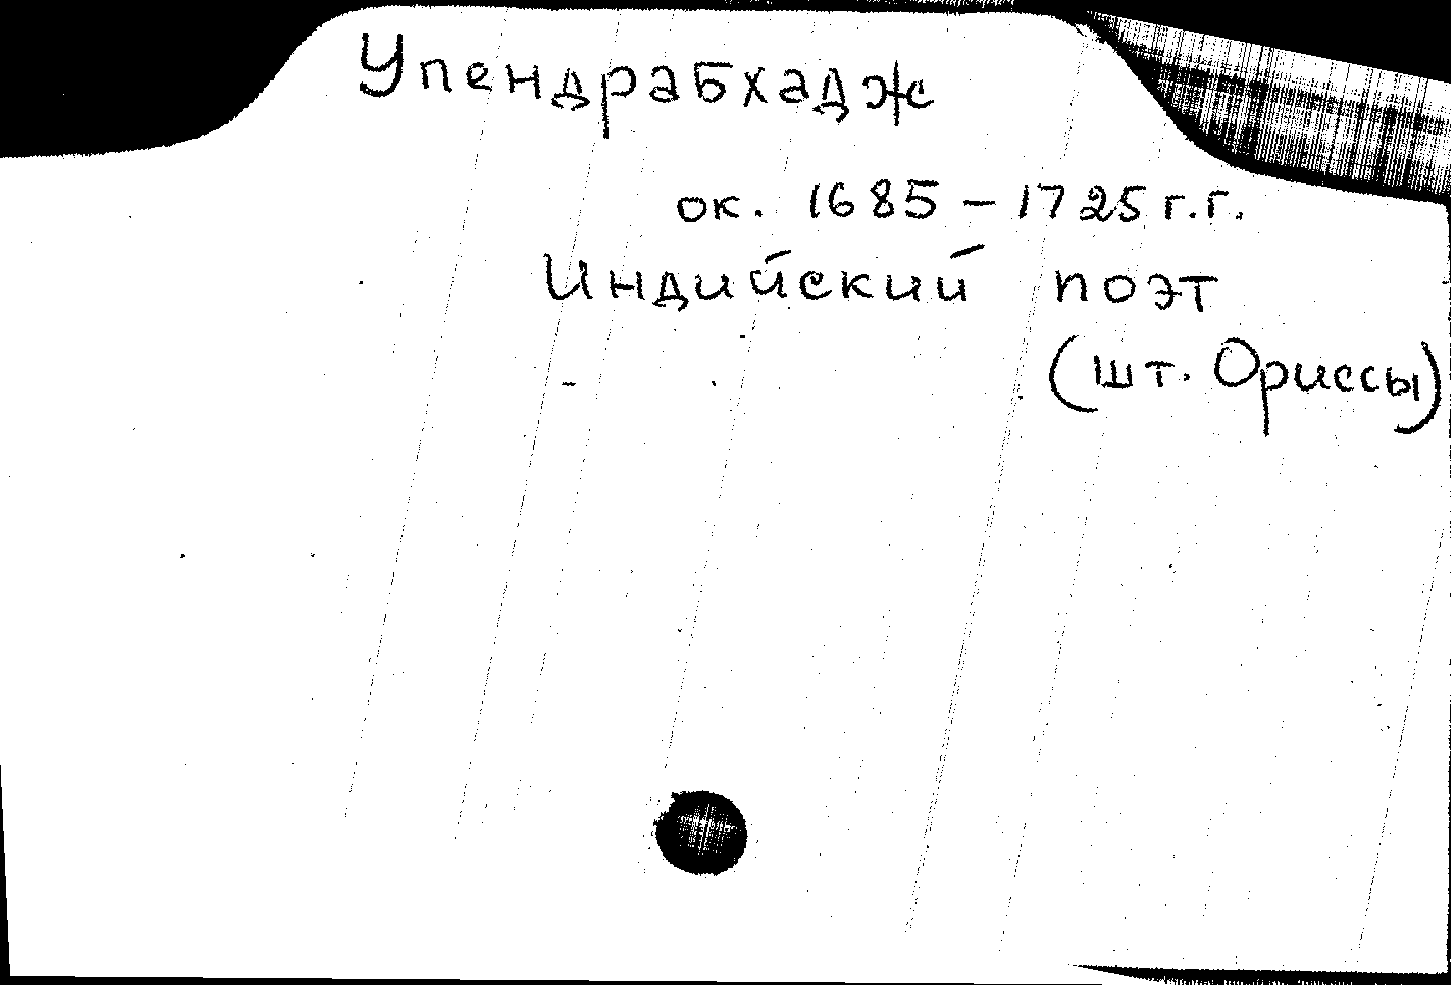 Упендрабхадж
ок. 1685 – 1725 г.г.
Индийский поэт
(шт. Ориссы)